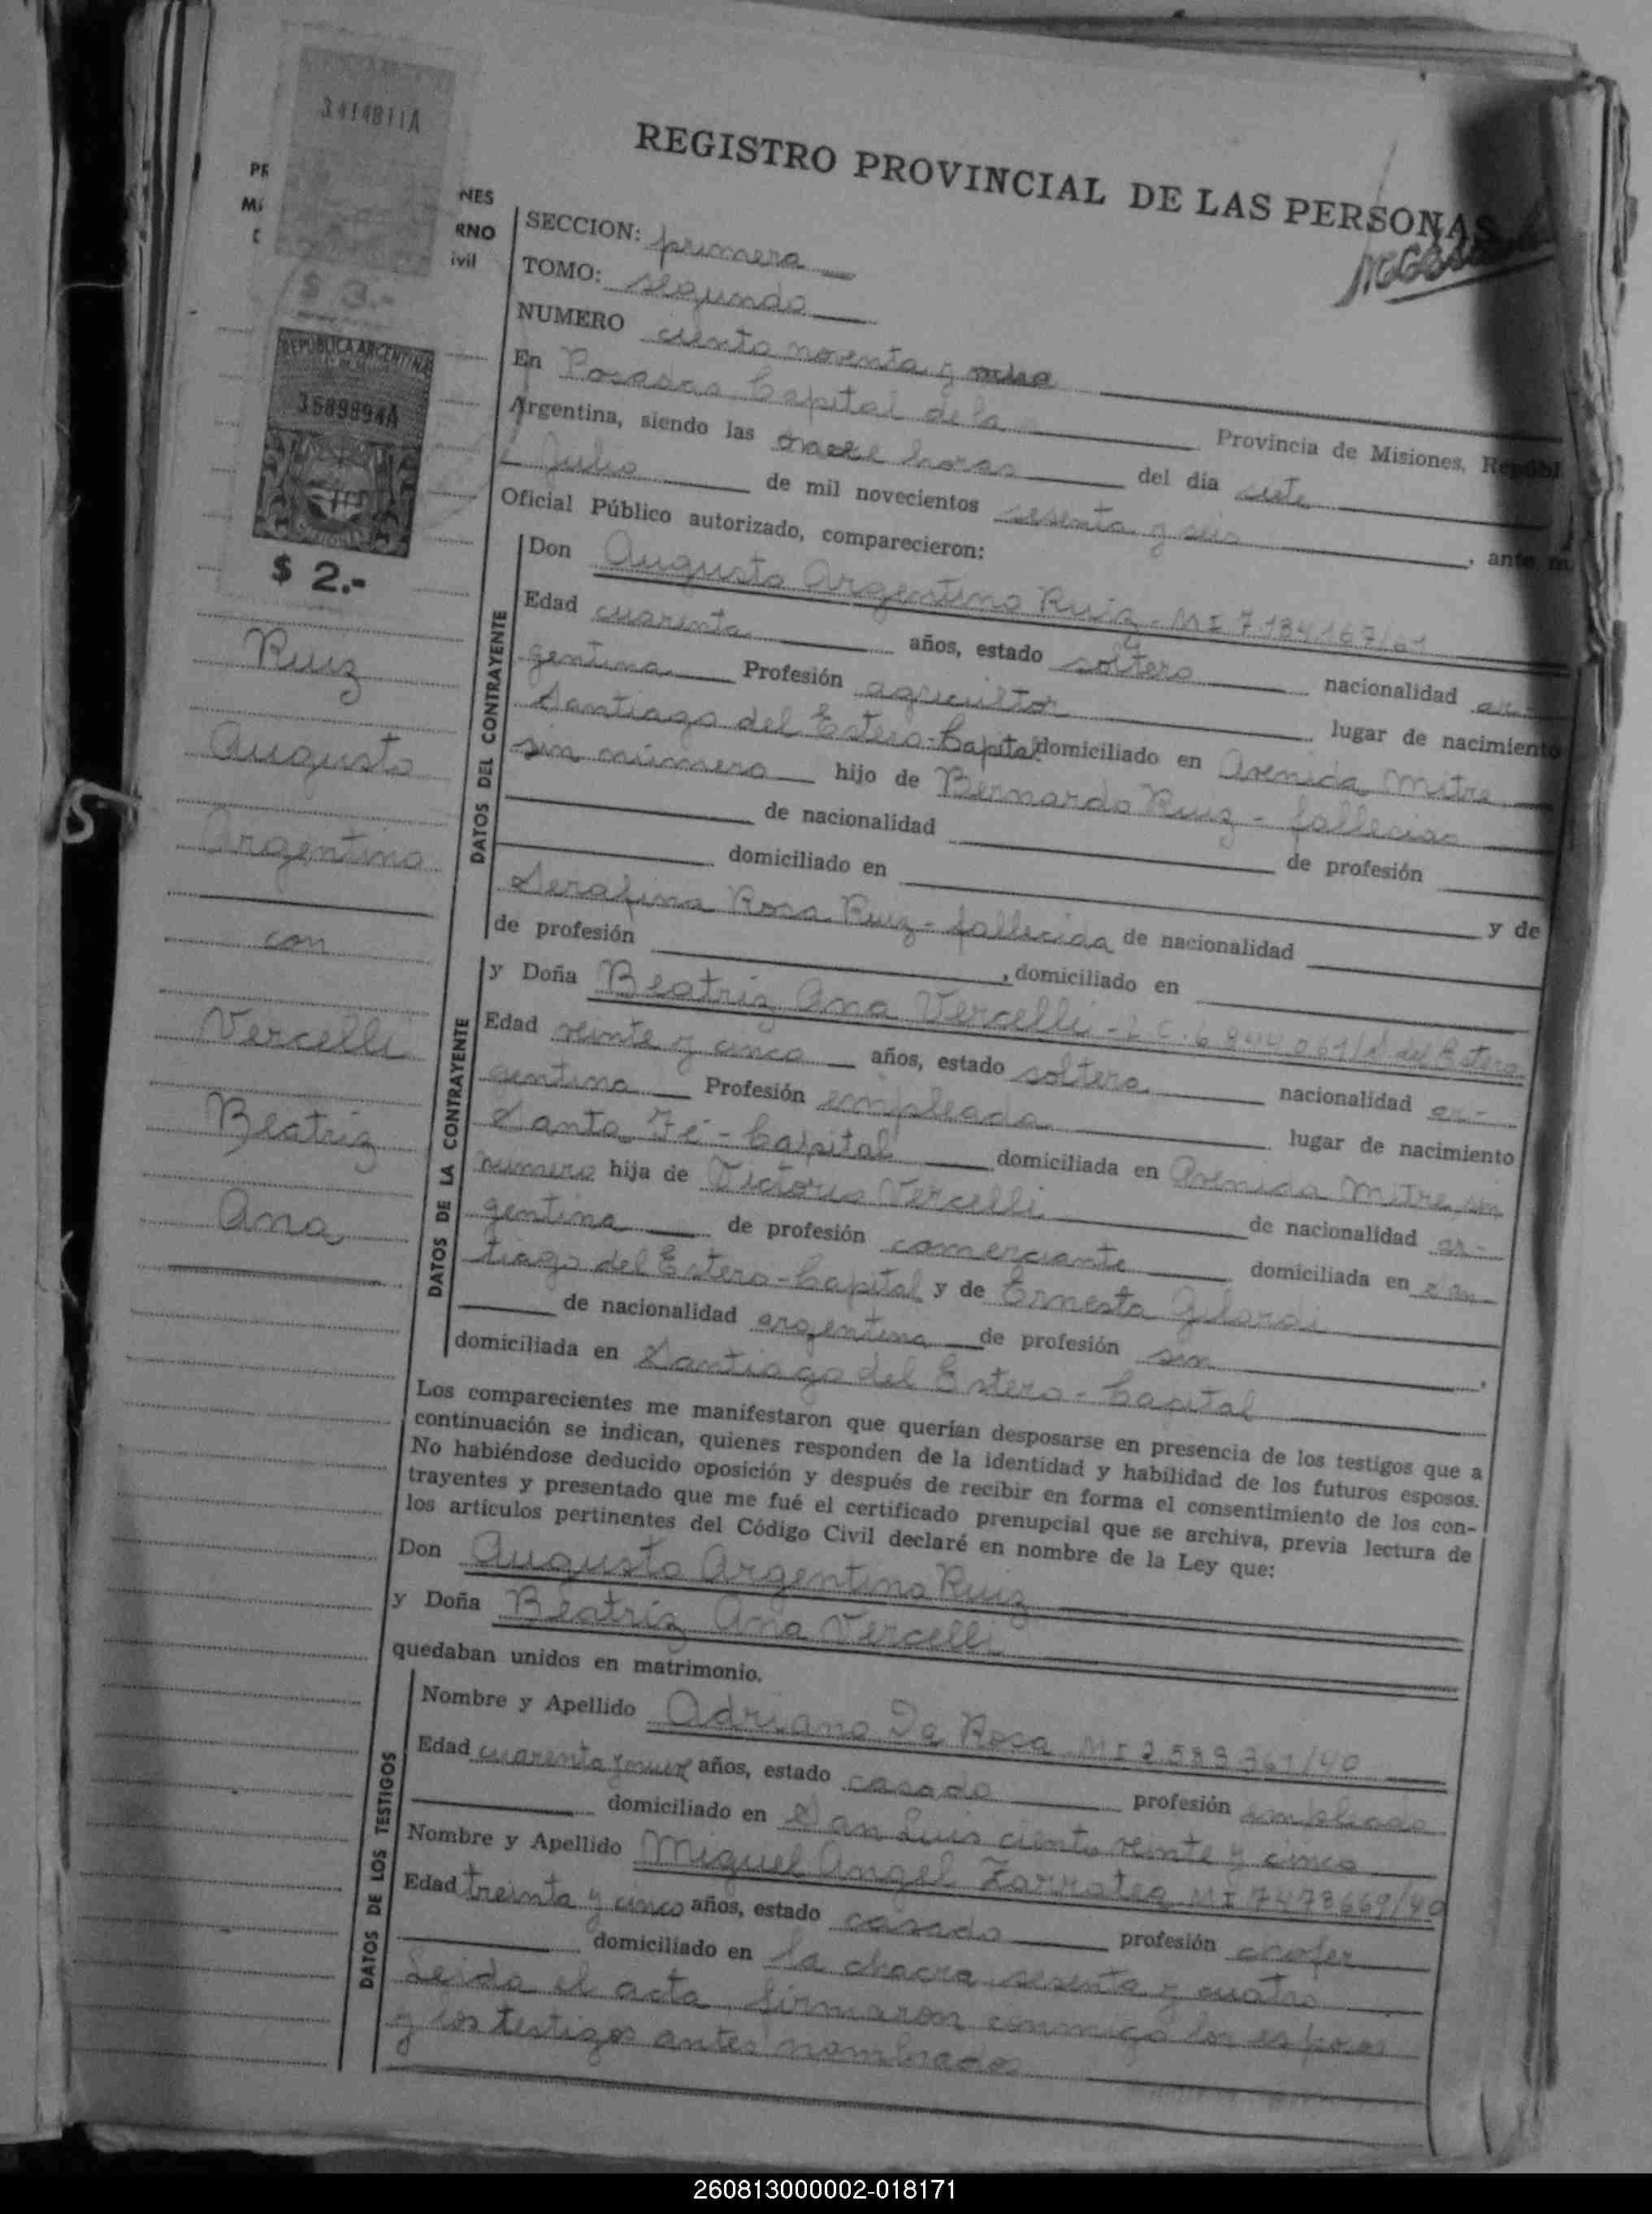 3414811A
REGISTRO PROVINCIAL DE LAS PERSONAS
NES
RNO
ivil
$ 3.-
REPUBLICA ARGENTINA
3589894A
$ 2.-
SECCION: primera
TOMO: segundo
NUMERO ciento noventa y ocho
En Posadas Capital de la Provincia de Misiones, Repúbl
Argentina, siendo las once horas del día siete
Julio de mil novecientos sesenta y seis, ante m
Oficial Público autorizado, comparecieron:
DATOS DEL CONTRAYENTE
Don Augusto Argentino Ruiz - MI 7.184.167/61
Edad cuarenta años, estado soltero nacionalidad ar-
gentina Profesión agricultor lugar de nacimiento
Santiago del Estero-Capital domiciliado en Avenida Mitre
sin número hijo de Bernardo Ruiz - fallecido
de nacionalidad de profesión
domiciliado en y de
Serafina Rosa Ruiz - fallecida de nacionalidad
de profesión , domiciliado en
DATOS DE LA CONTRAYENTE
y Doña Beatriz Ana Vercelli - L C. 6.844.061/S. del Estero
Edad veinte y cinco años, estado soltera nacionalidad ar-
gentina Profesión empleada lugar de nacimiento
Santa Fé - Capital domiciliada en Avenida Mitre sin
número hija de Victorio Vercelli de nacionalidad ar-
gentina de profesión comerciante domiciliada en San
tiago del Estero-Capital y de Ernesta Gilardi
de nacionalidad argentina de profesión sin
domiciliada en Santiago del Estero - Capital
Los comparecientes me manifestaron que querían desposarse en presencia de los testigos que a
continuación se indican, quienes responden de la identidad y habilidad de los futuros esposos.
No habiéndose deducido oposición y después de recibir en forma el consentimiento de los con-
trayentes y presentado que me fué el certificado prenupcial que se archiva, previa lectura de
los artículos pertinentes del Código Civil declaré en nombre de la Ley que:
Don Augusto Argentino Ruiz
y Doña Beatriz Ana Vercelli
quedaban unidos en matrimonio.
DATOS DE LOS TESTIGOS
Nombre y Apellido Adriano De Rosa MI 2.589.361/40
Edad cuarenta y años, estado casado profesión empleado
domiciliado en San Luis ciento veinte y cinco
Nombre y Apellido Miguel Angel Zarratea MI 7473669/40
Edad treinta y cinco años, estado casado profesión chofer
domiciliado en la chacra sesenta y cuatro
Leida el acta, firmaron conmigo los esposos
y los testigos antes nombrados
Ruiz
Augusto
Argentino
con
Vercelli
Beatriz
Ana
260813000002-018171